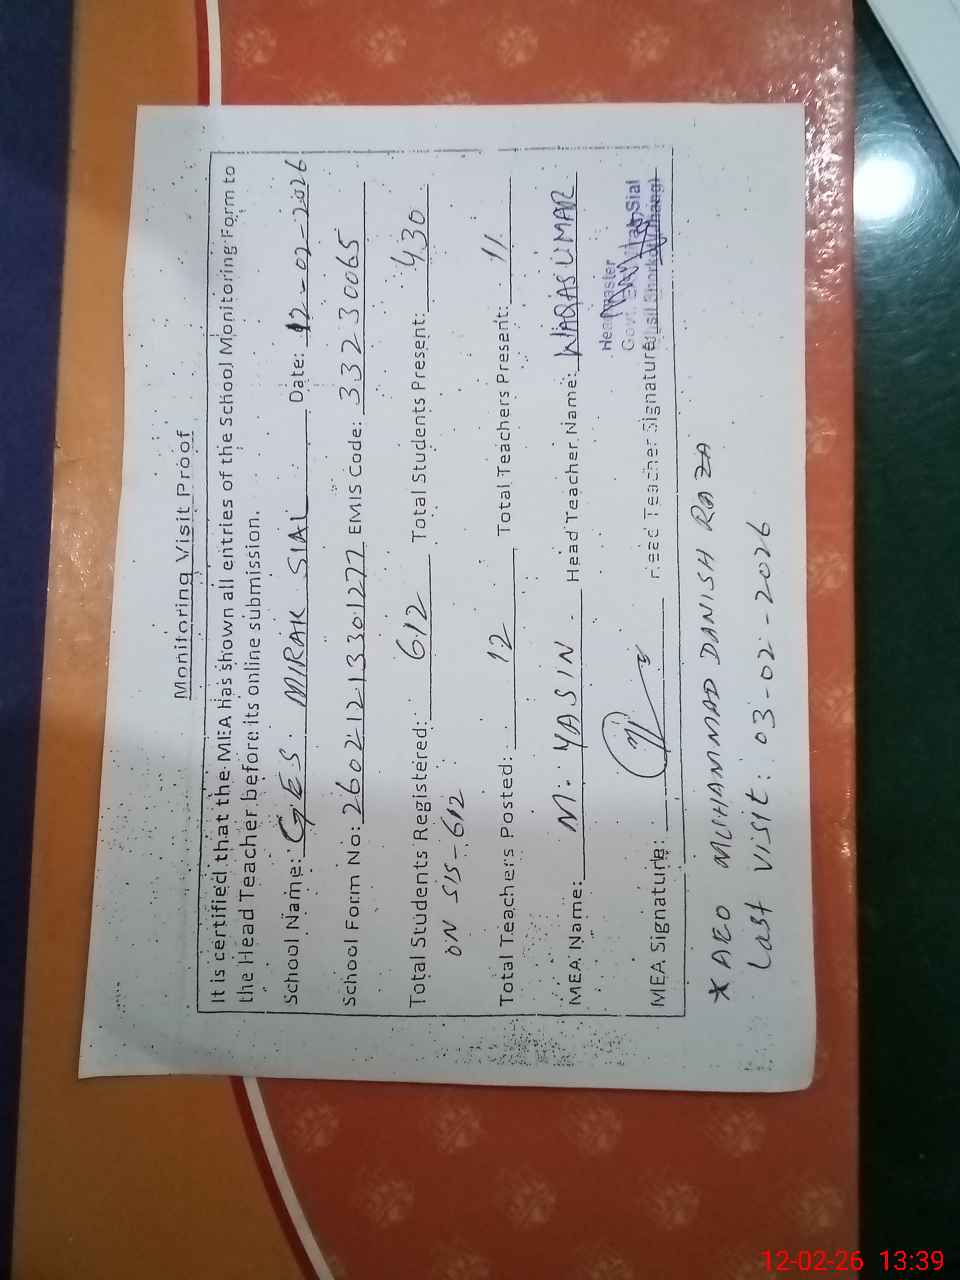 Monitoring Visit Proof
It is certified that the MEA has shown all entries of the School Monitoring Form to
the Head Teacher before its online submission.
School Name: GES. MIRAK SIAL Date: 12-02-2026
School Form No: 26021213301277 EMIS Code: 33230065
Total Students Registered: 612 Total Students Present: 430
ON SIS-612
Total Teachers Posted: 12 Total Teachers Present: 11
MEA Name: M. YASIN. Head Teacher Name: WAQAS UMAR
Headmaster
Govt. Sial
MEA Signature: Head Teacher Signature:
* AEO MUHAMMAD DANISH RAZA
Last visit: 03-02-2026
12-02-26 13:39